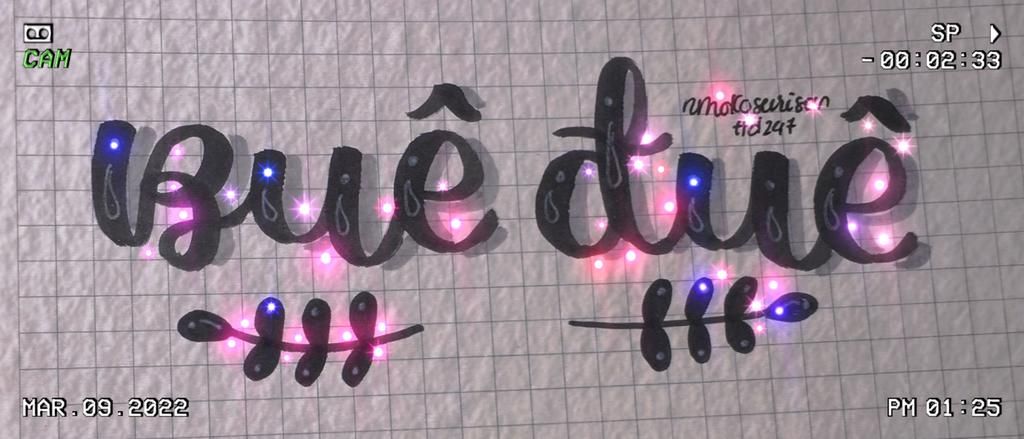 SP
CAM
-00:02:33
amokosurisan
tid247
Buê đuê
MAR.09.2022
PM 01:25